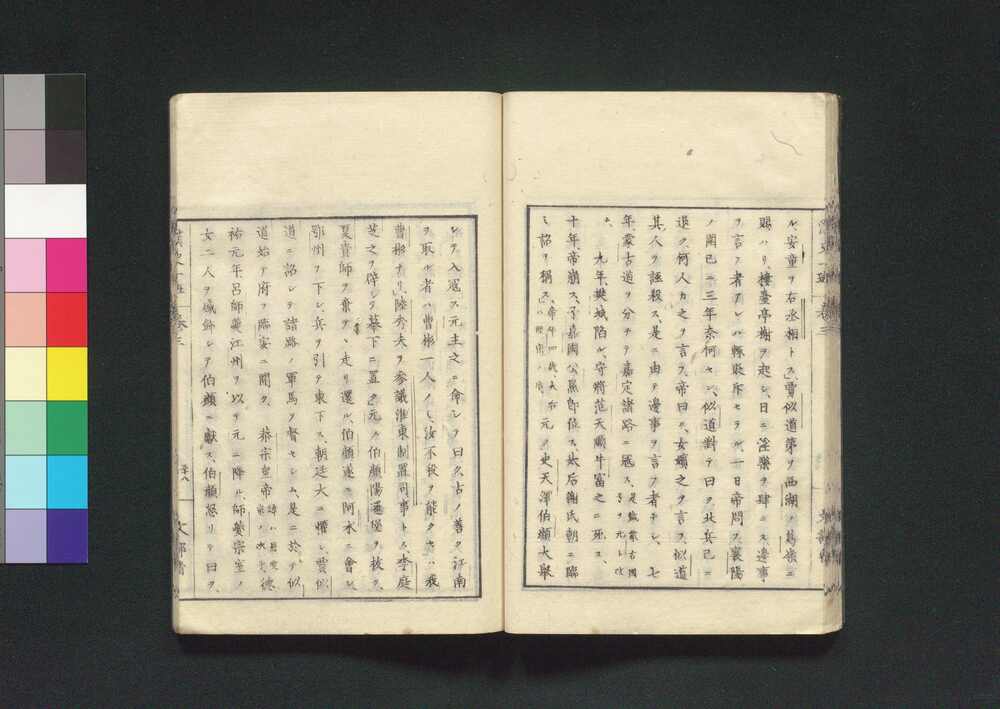 ル安童ヲ右丞相トス、賈似道第ヲ西湖ノ葛嶺ニ
賜ハリ樓臺亭榭ヲ起シ、日ニ淫樂ヲ肆ニス邊事
ヲ言フ者アレハ輙貶斥セラル、一日帝問フ襄陽
ノ圍已ニ三年奈何セン、似道對テ曰ク北兵已ニ
退ク、何人カ之ヲ言フ、帝曰ク、女嬪之ヲ言フ、似道
其人ヲ誣殺ス是ニ由テ邊事ヲ言フ者ナシ、 七
年、蒙古道ヲ分チテ嘉定諸路ニ寇ス、是歳蒙古國号ヲ元ト改
ム 九年、樊城陷ル、守將范天順牛富之ニ死ス、
十年、帝崩ス、子嘉國公㬎即位ス、太后謝氏朝ニ臨
ミ詔ヲ稱ス、帝年四歳、 元ノ史天澤伯顏大擧
シテ入寇ス元主之ニ命シテ曰ク古ノ善ク江南
ヲ取ル者ハ曹彬一人ノミ、汝不殺ヲ能クセハ我
曹彬ナリ、陸秀夫ヲ參議淮東制置司事トス、李庭
芝之ヲ辟シテ幕下ニ置ク元ノ伯顏陽邏堡ヲ拔ク、
夏貴師ヲ棄テヽ走リ還ル、伯顏遂ニ阿朮ニ會シ
鄂州ヲ下シ、兵ヲ引テ東下ス、朝廷大ニ懼レ、賈似
道ニ詔シテ諸路ノ軍馬ヲ督セシム、是ニ於テ似
道始テ府ヲ臨安ニ開ク、 恭宗皇帝 德
祐元年、呂師夔江州ヲ以テ元ニ降ル、師夔宗室ノ
女二人ヲ盛飾シテ伯顏ニ獻ス、伯顏怒リテ曰ク、
卷三
文部省